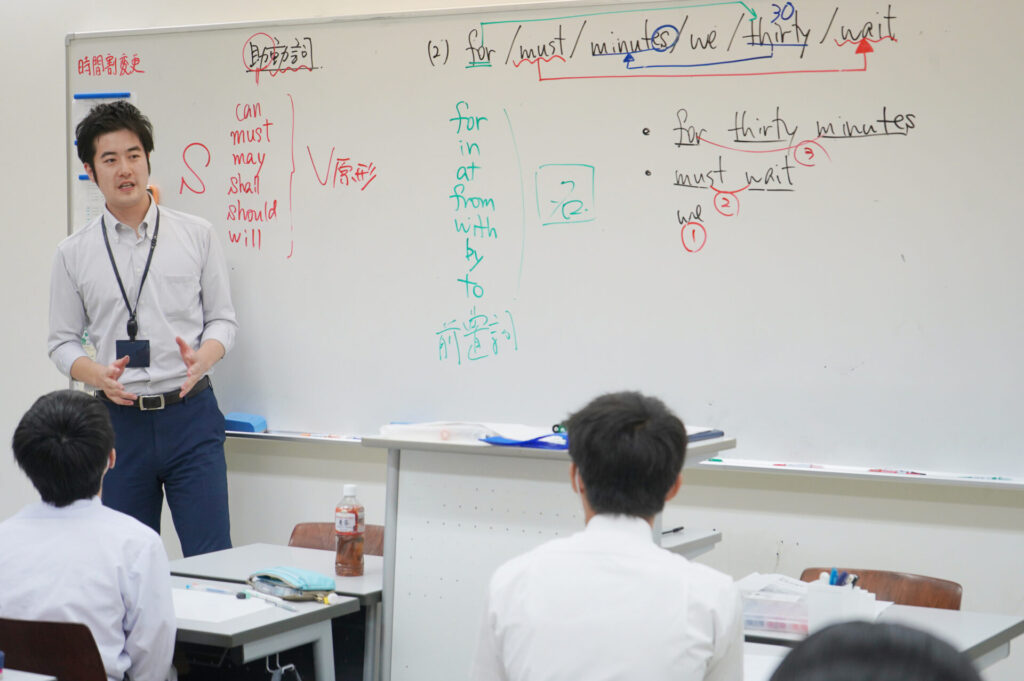 時間割変更
助動詞
can
must
may
shall
should
will
S
V原形
(2) for / must / minutes / we / thirty / wait
30
for
in
at
from
with
by
to
前置詞
• for thirty minutes
③
• must wait
②
we
①